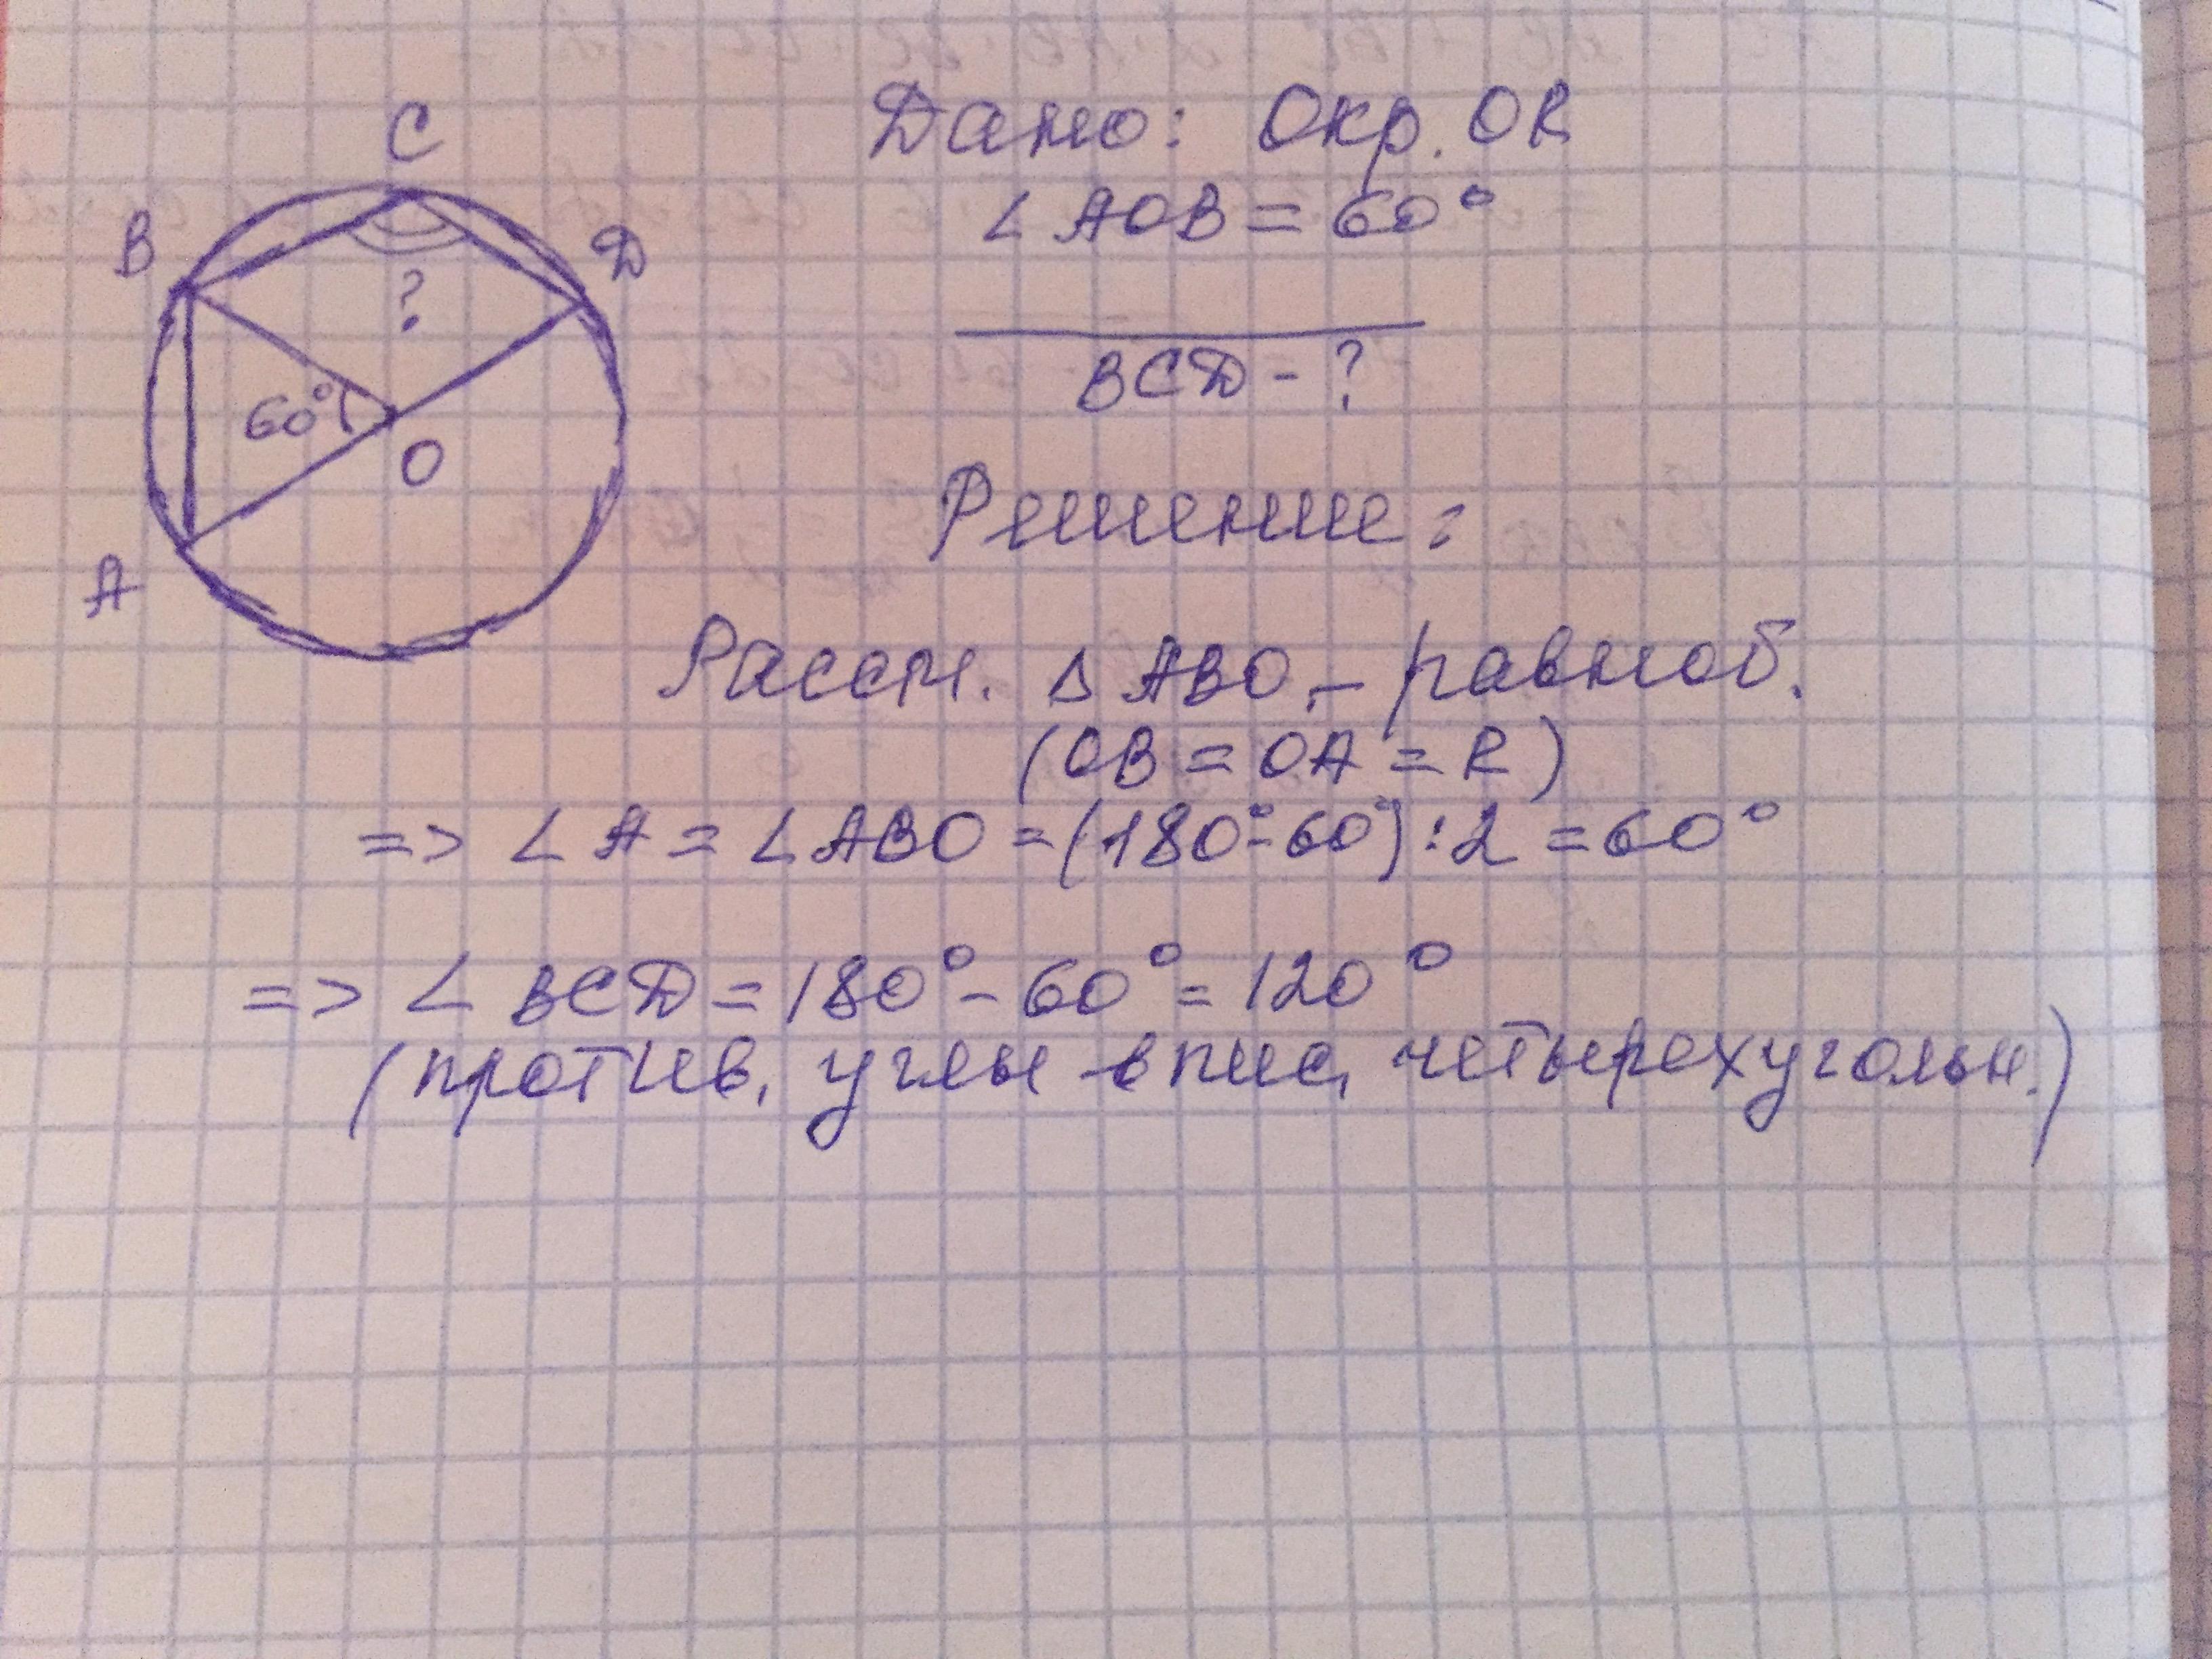 C
B
D
?
60°
O
A
Дано: Окр. OR
∠ AOB = 60°
BCD - ?
Решение:
Рассм. Δ ABO, - равноб.
(OB = OA = R)
=> ∠ A = ∠ ABO = (180°-60°) : 2 = 60°
=> ∠ BCD = 180° - 60° = 120°
(против. углы впис. четырехугольн.)